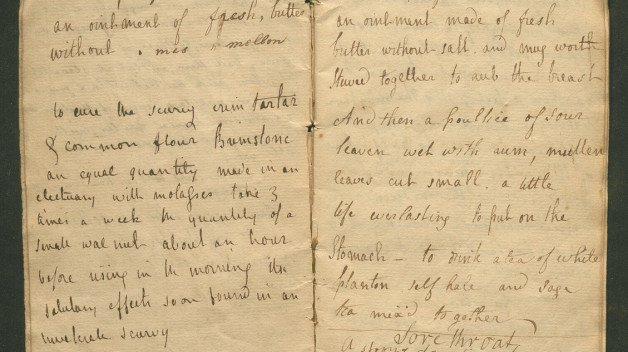 an ointment of fresh, butter
without
to cure the scurvy crem tartar
& common flour Brimstone
an equal quantity made in an
electuary with molasses take 3
times a week the quantity of a
small wal nut about an hour
before rising in the morning its
salutary effects soon found in an
inveterate scurvy
an ointment made of fresh
butter without salt. and mug worth
Stewed together to rub the breast
And then a poultice of sour
leaven wet with rum, mullen
leaves cut small. a little
life everlasting to put on the
Stomach - to drink a tea of white
planton self hale and sage
tea mix'd together
Sore Throat
a strong